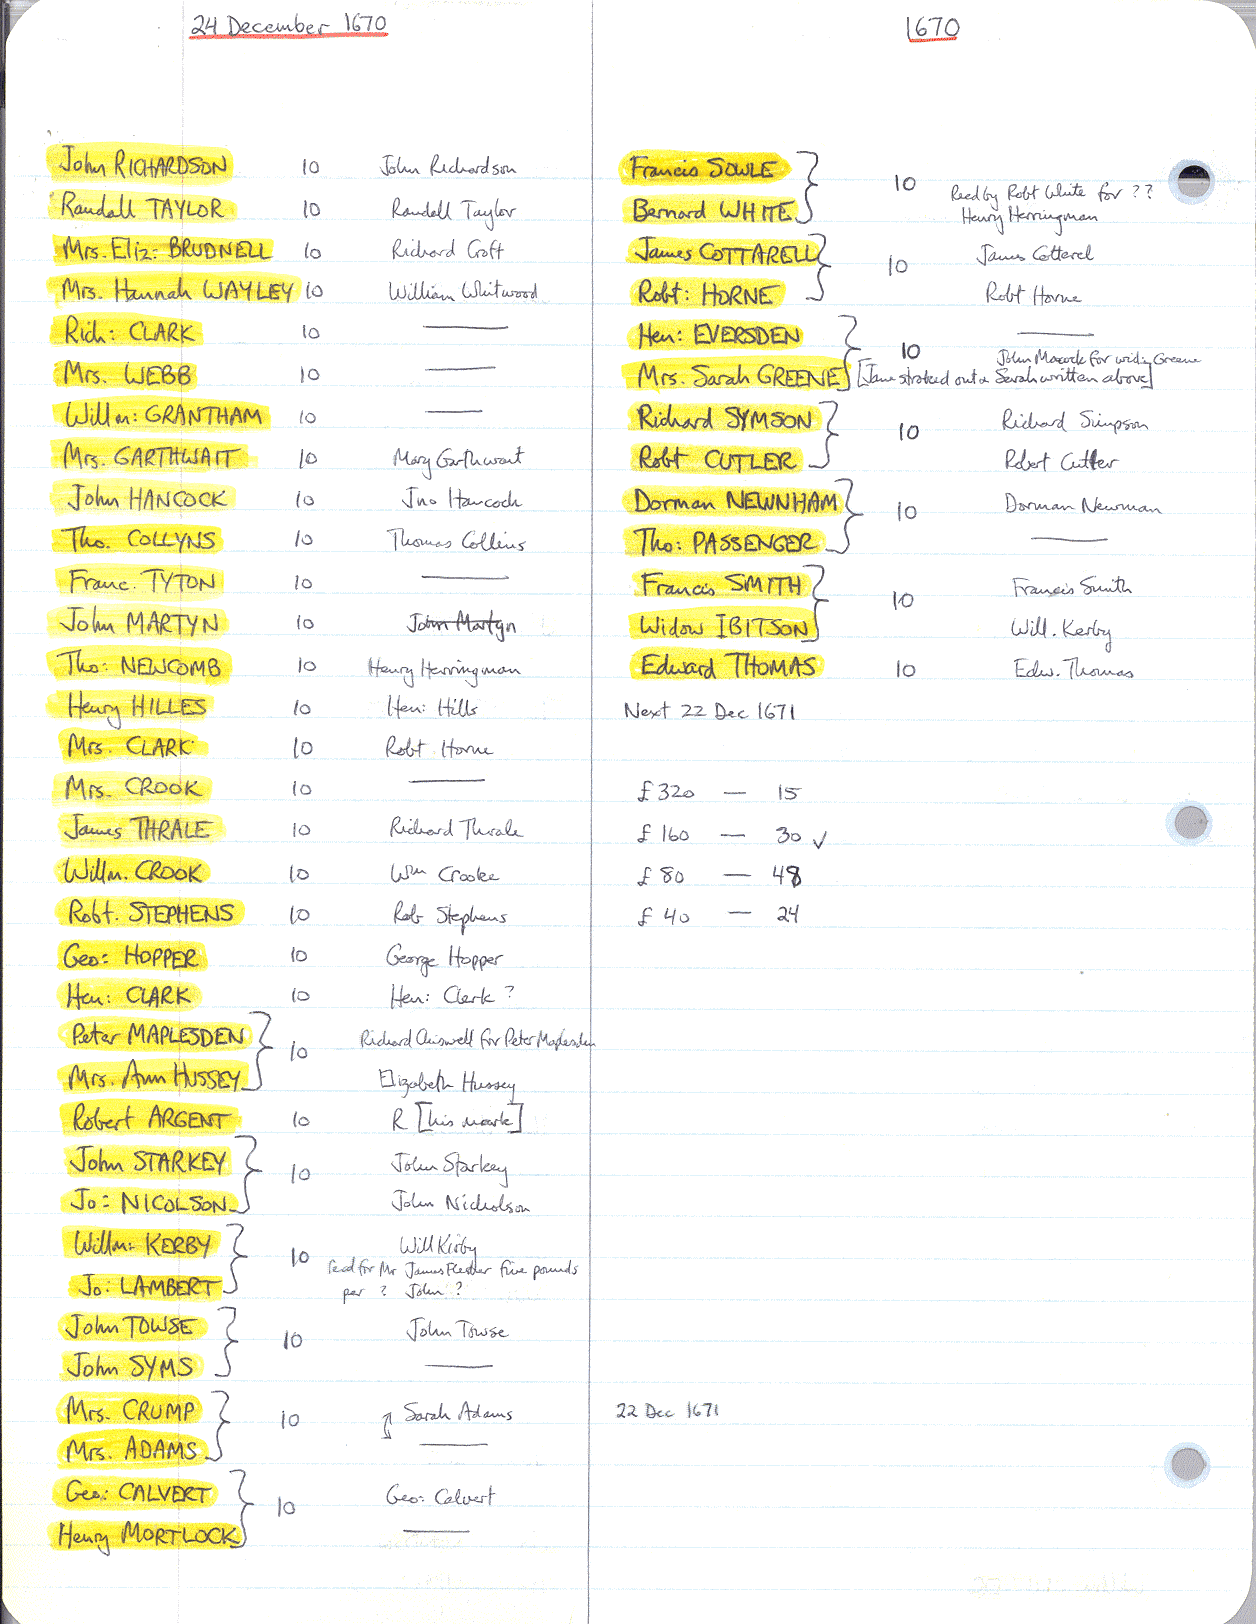 24 December 1670
John RICHARDSON 10 John Richardson
Randall TAYLOR 10 Randall Taylor
Mrs. Eliz: BRUDNELL 10 Richard Croft
Mrs. Hannah WAYLEY 10 William Whitwood
Rich: CLARK 10 ———
Mrs. WEBB 10 ———
Willm: GRANTHAM 10 ———
Mrs. GARTHWAIT 10 Mary Garthwait
John HANCOCK 10 Jno Hancock
Tho. COLLYNS 10 Thomas Collins
Franc. TYTON 10 ———
John MARTYN 10 John Martyn
Tho: NEWCOMB 10 Henry Herringman
Henry HILLES 10 Hen: Hills
Mrs. CLARK 10 Robt Horne
Mrs. CROOK 10 ———
James THRALE 10 Richard Thrale
Willm. CROOK 10 Wm Crooke
Robt. STEPHENS 10 Rob Stephens
Geo: HOPPER 10 George Hopper
Hen: CLARK 10 Hen: Clerk ?
Peter MAPLESDEN } 10 Richard Chiswell for Peter Maplesden
Mrs. Ann HUSSEY Elizabeth Hussey
Robert ARGENT 10 R [his mark]
John STARKEY } 10 John Starkey
Jo: NICOLSON John Nicholson
Willm: KERBY } 10 Will Kirby
recd for Mr James Flesher five pounds
Jo: LAMBERT per ? John ?
John TOWSE } 10 John Towse
John SYMS ———
Mrs. CRUMP } 10 Sarah Adams
Mrs. ADAMS ———
Geo: CALVERT } 10 Geo: Calvert
Henry MORTLOCK ———
1670
Francis SOWLE } 10 Recd by Robt White for ??
Bernard WHITE Henry Herringman
James COTTARELL } 10 James Cotterel
Robt: HORNE Robt Horne
Hen: EVERSDEN } 10 ———
John Macock for widw Greene
Mrs. Sarah GREENE [Jane stroked out & Sarah written above]
Richard SYMSON } 10 Richard Simpson
Robt CUTLER Robert Cutler
Dorman NEWNHAM } 10 Dorman Newman
Tho: PASSENGER ———
Francis SMITH } 10 Francis Smith
Widow IBITSON Will. Kerby
Edward THOMAS 10 Edw. Thomas
Next 22 Dec 1671
£320 — 15
£160 — 30 ✓
£80 — 48
£40 — 24
22 Dec 1671